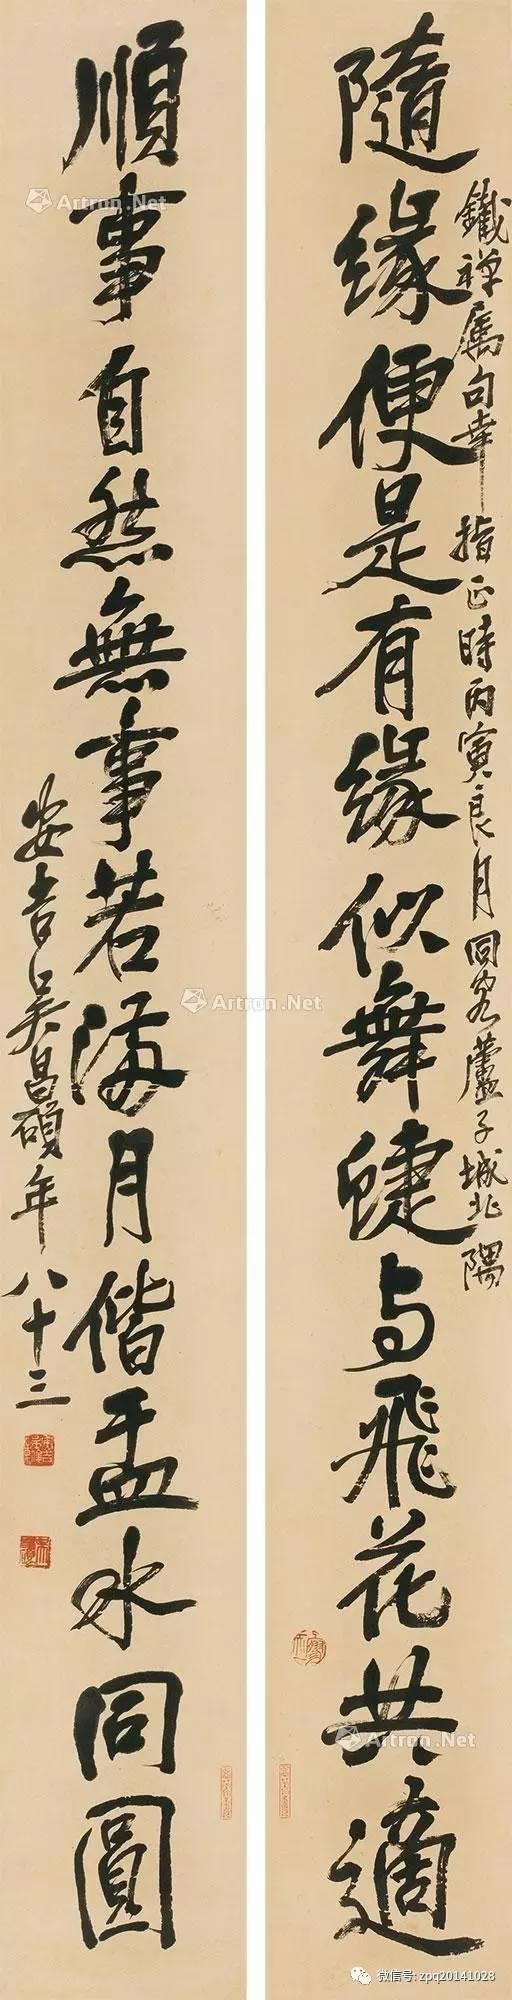 鐵禪属句幸 指正時丙寅良月同客蘆子城北隅
隨緣便是有緣似舞蜨与飛花共適
順事自然無事若滿月偕盂水同圓
安吉吳昌碩年八十三
Artron.Net
Artron.Net
Artron.Net
Artron.Net
Artron.Net
微信号: zpq20141028